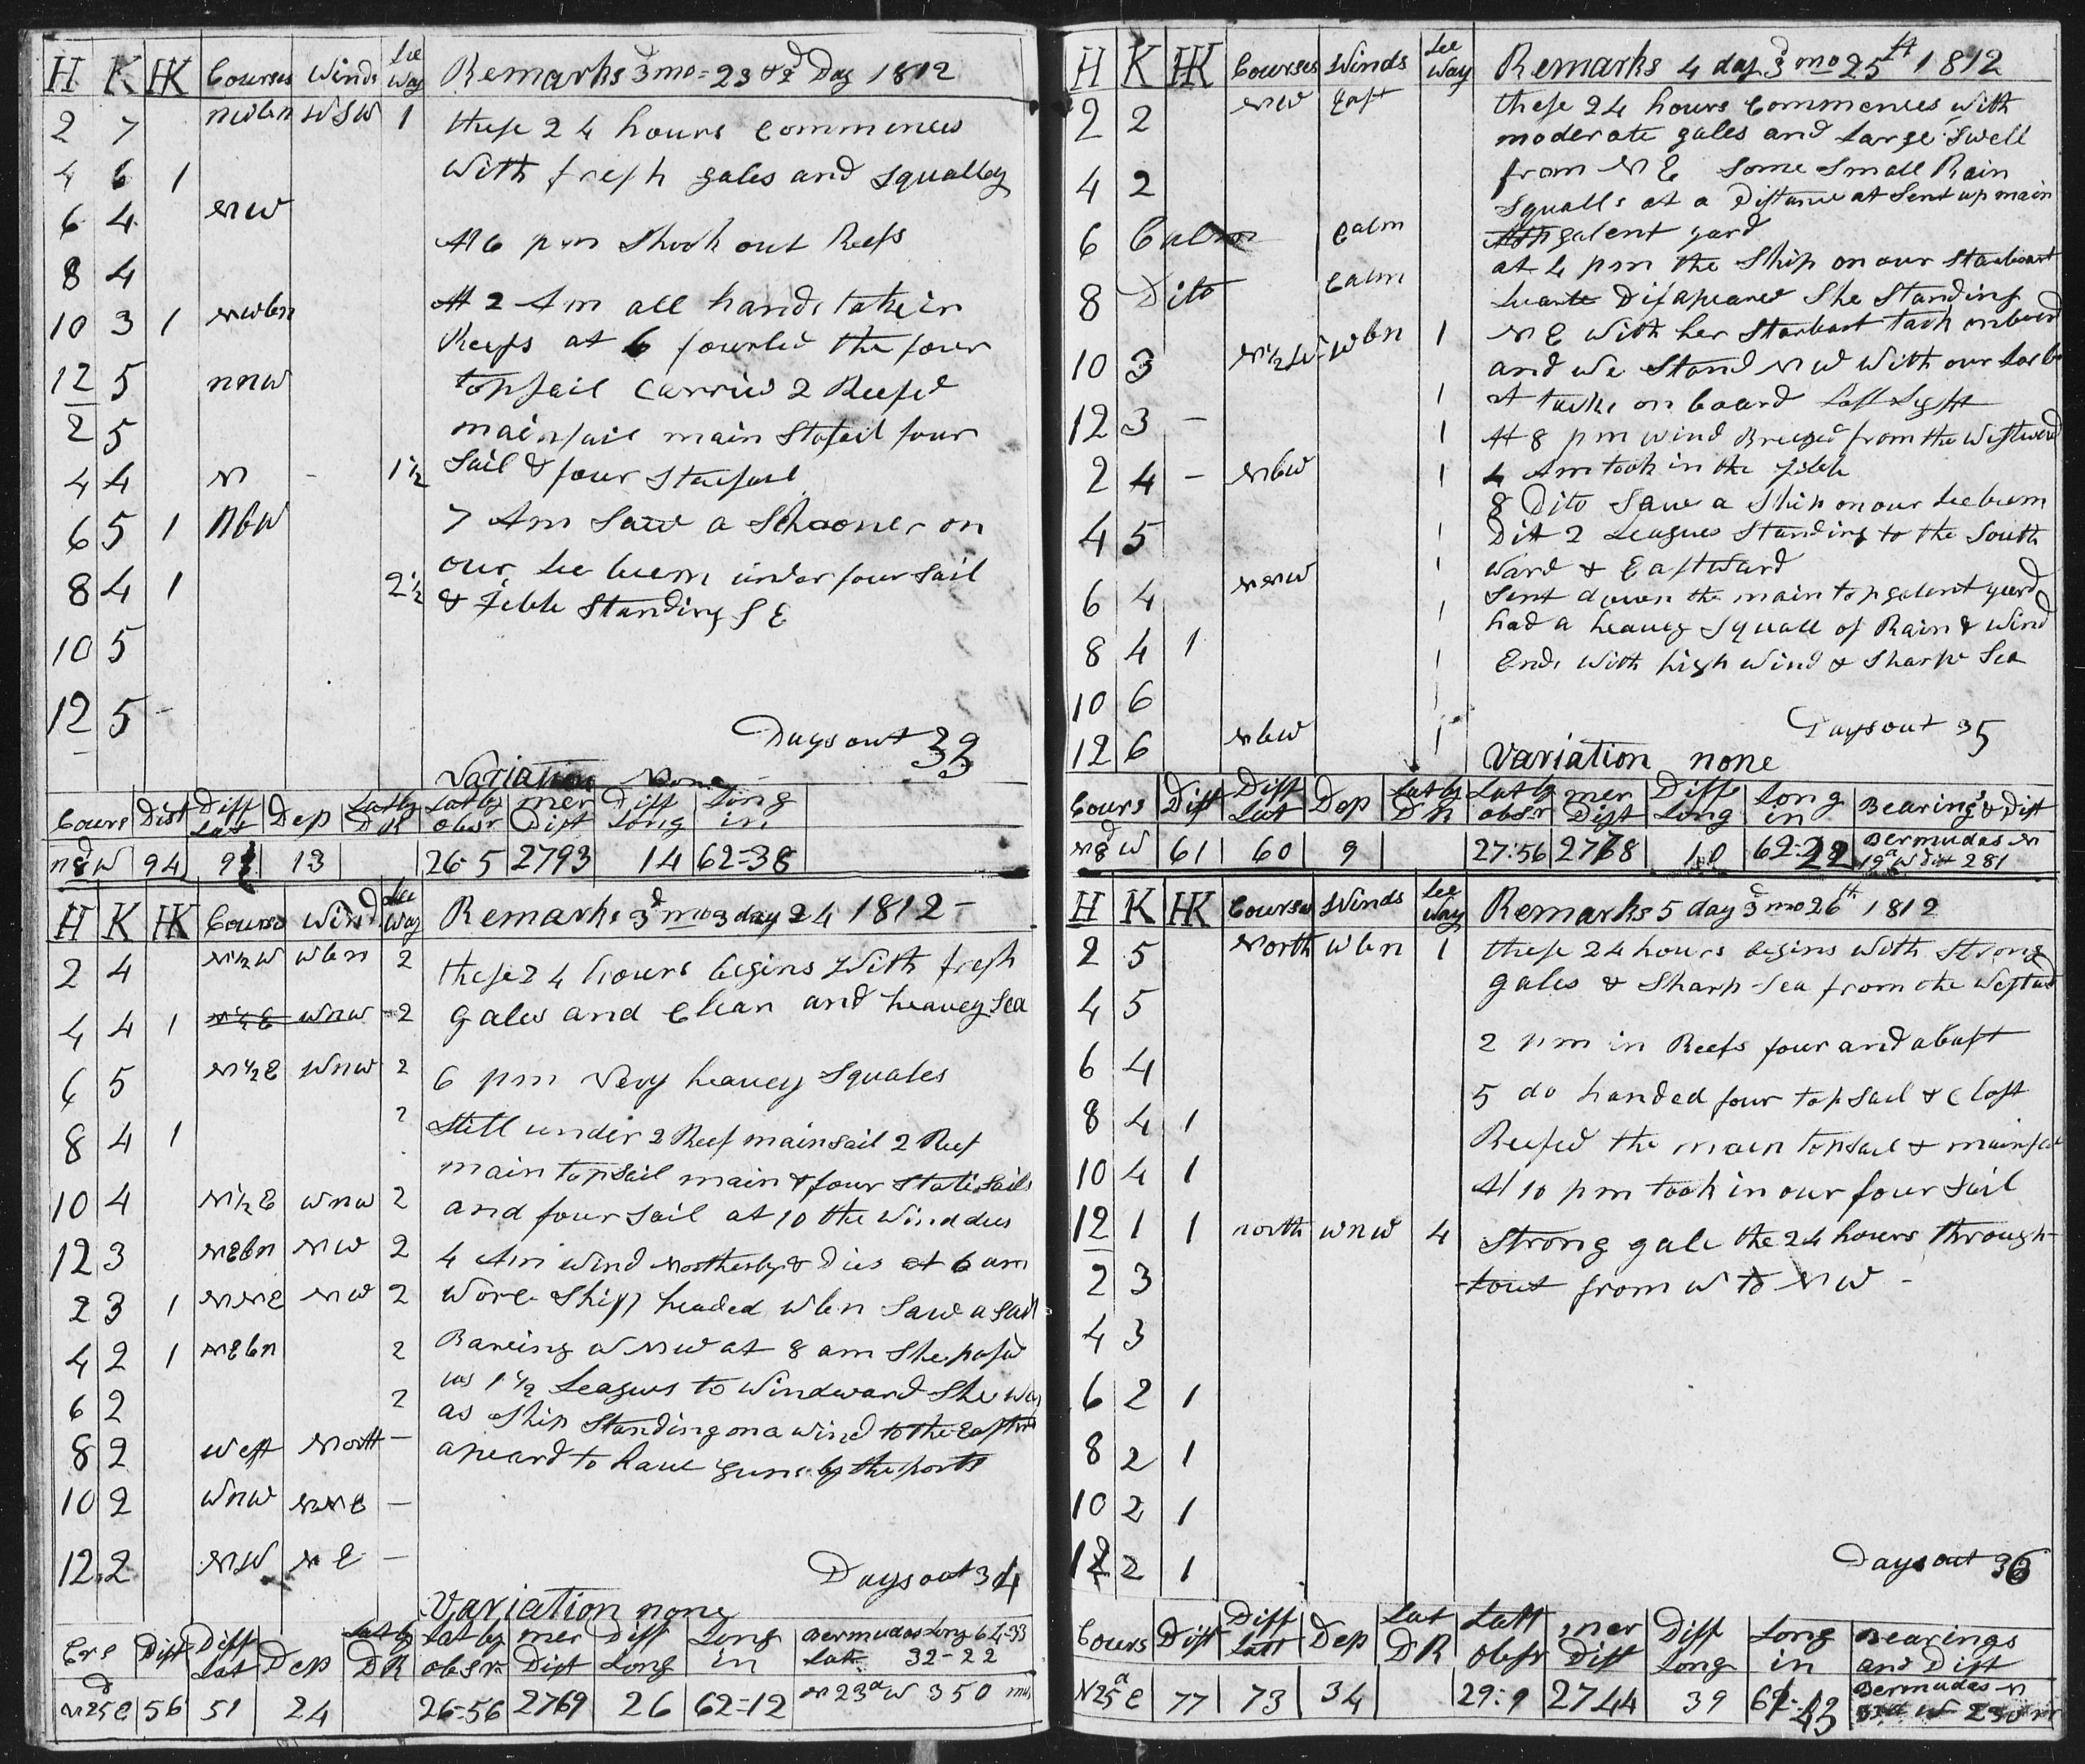 H K HK Courses Winds Lee Way Remarks 3d mo = 23 & 2d Day 1812
2 7 nwbn WSW 1 these 24 hours Commences
4 6 1 With fresh gales and squalley
6 4 NW
At 6 pm Shook out Reefs
8 4
10 3 1 nwbn At 2 Am all hands take in
Reefs at 6 fourled the four
12 5 nnw topsail Carried 2 Reefed
2 5 mainsail main Stasail four
4 4 N - 1½ Sail & four Stasail
6 5 1 Nbw 7 Am Saw a Schooner on
8 4 1 2½ our Lee beem under four Sail
& Jebb Standing S E
10 5
12 5 -
Days out 33
Variation None
Cours Dist Diff Lat Dep Lat by DR Lat by obsr mer Dist Diff Long Long in
n 8d W 94 93 13 26-5 2793 14 62=38
H K HK Courses Wind Lee Way Remarks 3d mo 3 day 24 1812 -
2 4 N½W wbn 2 these 24 hours begins With fresh
4 4 1 N½E wnw 2 gales and Clear and heavey Sea
6 5 N½E wnw 2 6 pm Very heavey Squales
8 4 1 2 Still under 2 Reef mainsail 2 Reef
main topsail main & four State Sails
10 4 N½E wnw 2 and four Sail at 10 the Wind dies
12 3 NEbn NW 2 4 Am Wind Northerly & Dies at 6 am
2 3 1 NNE NW 2 Wore Ship headed wbn Saw a Sail
4 2 1 NEbn 2 Bareing W NW at 8 am She pasd
6 2 2 us 1½ Leagues to Windward She was
as Ship Standing on a Wind to the Eastwd
8 2 West North - apeard to have guns by the ports
10 2 Wnw NNE -
12 2 NW N E -
Days out 34
Variation none
Crs Dist Diff Lat Dep Lat by DR Lat by obsr mer Dist Diff Long Long in Bermudas Long 64=33
Lat 32-22
N 25d E 56 51 24 26=56 2769 26 62=12 N 23d W 350 mls
H K HK Courses Winds Lee Way Remarks 4 day 3d mo 25th 1812
2 2 NW East these 24 hours Commences With
moderate gales and Large Swell
4 2 from N E Some Small Rain
Squalls at a Distance at Sent up main
6 Calm Calm galent yard
8 Dito Calm at 4 pm the Ship on our Starboart
Luarte Disapeared She Standing
10 3 N½W wbn 1 N E With her Starbort tack onboard
and We Stand N W With our Larbo
12 3 - 1 rt tacks on board Last Sight
1 At 8 pm Wind Breezed from the Westward
2 4 - Nbw 1 4 Am took in the Jibb
8 Dito Saw a Ship on our Lee beem
4 5 1 Dist 2 Leagues Standing to the South
1 Ward & Eastward
6 4 NNW 1 Sent down the main topgalent yard
8 4 1 had a heavey Squall of Rain & Wind
1 Ends With high Wind & Sharp Sea
10 6 1
12 6 Nbw 1
Days out 35
Variation none
Cours Dist Diff Lat Dep Lat by DR Lat by obsr mer Dist Diff Long Long in Bearings & Dist
N 8d W 61 60 9 27:56 2768 10 62-22 Bermudas N
19d W Dist 281
H K HK Courses Winds Lee Way Remarks 5 day 3d mo 26th 1812
2 5 North Wbn 1 these 24 hours begins With Strong
4 5 gales & Sharp Sea from the Westwd
6 4 2 pm in Reefs four and abaft
8 4 1 5 do handed four topsail & Clost
Reefed the main topsail & mainsal
10 4 1 At 10 pm took in our four Sail
12 1 1 north wnw 4 Strong gale the 24 hours through-
2 3 tout from W to N W -
4 3
6 2 1
8 2 1
10 2 1
12 2 1
Days out 36
Cours Dist Diff Latt Dep Lat DR Latt obsr mer Dist Diff Long Long in Bearings and Dist
N 25d E 77 73 34 29:9 2744 39 Bermudas N
W 230